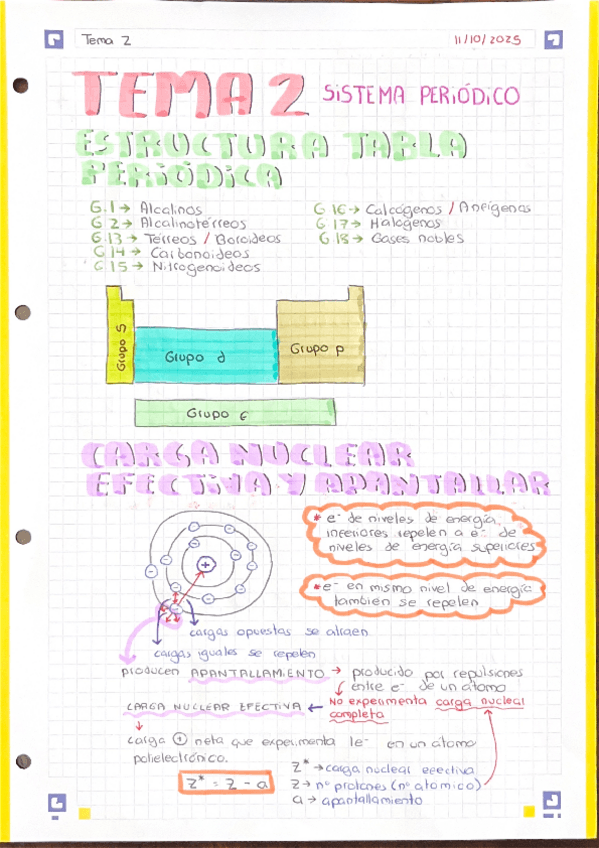 Tema 2
11/10/2025
TEMA 2 SISTEMA PERIÓDICO
ESTRUCTURA TABLA
PERIÓDICA
G.1 → Alcalinos
G 2 → Alcalinotérreos
G 13 → Térreos / Boroideos
G 14 → Carbonoideos
G 15 → Nitrogenoideos
G 16 → Calcógenos / Anfígenos
G 17 → Halógenos
G.18 → Gases nobles
Grupo S
Grupo d
Grupo p
Grupo f
CARGA NUCLEAR
EFECTIVA Y APANTALLAR
* e⁻ de niveles de energía
inferiores repelen a e⁻ de
niveles de energía superiores
* e⁻ en mismo nivel de energía
también se repelen
+
cargas opuestas se atraen
cargas iguales se repelen
producen APANTALLAMIENTO → producido por repulsiones
entre e⁻ de un átomo
CARGA NUCLEAR EFECTIVA ← No experimenta carga nuclear
completa
carga + neta que experimenta 1e⁻ en un átomo
polielectrónico.
Z* = Z - a
Z* → carga nuclear efectiva
Z → nº protones (nº atómico)
a → apantallamiento